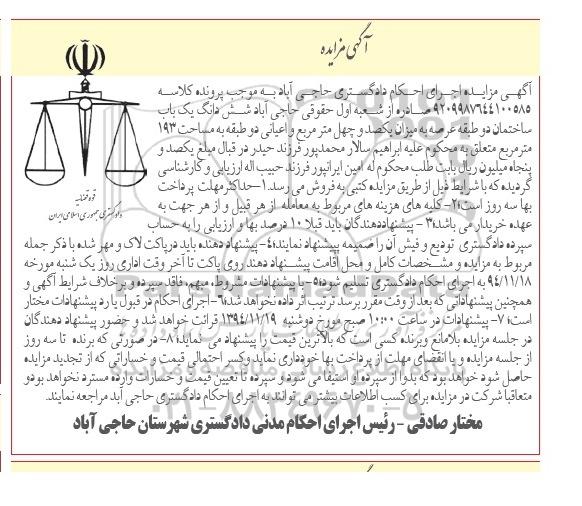 آگهی مزایده
آگهی مزایده اجرای احکام دادگستری حاجی آباد به موجب پرونده کلاسه
۹۲۰۹۹۸۷۶۴۴۱۰۰۵۸۵ صادره از شعبه اول حقوقی حاجی آباد شش دانگ یک باب
ساختمان دو طبقه عرصه به میزان یکصد و چهل متر مربع و اعیانی دو طبقه به مساحت ۱۹۳
مترمربع متعلق به محکوم علیه ابراهیم سالار محمدپور فرزند حیدر در قبال مبلغ یکصد و
پنجاه میلیون ریال بابت طلب محکوم له امین ایرانپور فرزند حبیب اله ارزیابی و کارشناسی
گردیده که با شرایط ذیل از طریق مزایده کتبی به فروش می رسد.۱-حداکثر مهلت پرداخت
بها سه روز است؛۲-کلیه های هزینه های مربوط به معامله از هر قبیل و از هر جهت به
عهده خریدار می باشد؛۳- پیشنهاددهندگان باید قبلا ۱۰ درصد بها و ارزیابی را به حساب
سپرده دادگستری تودیع و فیش آن را ضمیمه پیشنهاد نمایند؛۴-پیشنهاد دهنده باید در پاکت لاک و مهر شده با ذکر جمله
مربوط به مزایده و مشخصات کامل و محل اقامت پیشنهاد دهند روی پاکت تا آخر وقت اداری روز یک شنبه مورخه
۹۴/۱۱/۱۸ به اجرای احکام دادگستری تسلیم شود؛۵-با پیشنهادات مشروط، مبهم، فاقد سپرده و برخلاف شرایط آگهی و
همچنین پیشنهاداتی که بعد از وقت مقرر برسد ترتیب اثر داده نخواهد شد؛۶-اجرای احکام در قبول یا رد پیشنهادات مختار
است؛ ۷- پیشنهادات در ساعت ۱۰:۰۰ صبح مورخ دوشنبه ۱۳۹۴/۱۱/۱۹ قرائت خواهد شد و حضور پیشنهاد دهندگان
در جلسه مزایده بلامانع وبرنده کسی است که بالاترین قیمت را پیشنهاد می نماید؛ ۸- در صورتی که برنده تا سه روز
از جلسه مزایده و یا انقضای مهلت از پرداخت بها خودداری نماید وکسر احتمالی قیمت و خساراتی که از تجدید مزایده
حاصل شود خواهد بود که بدوا از سپرده او استیفا می شود و سپرده تا تعیین قیمت و خسارات وارده مسترد نخواهد بود و
متعاقبا شرکت در مزایده برای کسب اطلاعات بیشتر می توانند به اجرای احکام دادگستری حاجی آباد مراجعه نمایند.
مختار صادقی - رئیس اجرای احکام مدنی دادگستری شهرستان حاجی آباد
قوه قضائیه
دادگستری جمهوری اسلامی ایران
۰۲۱-۸۸۳۴۹۶۷۰-۵